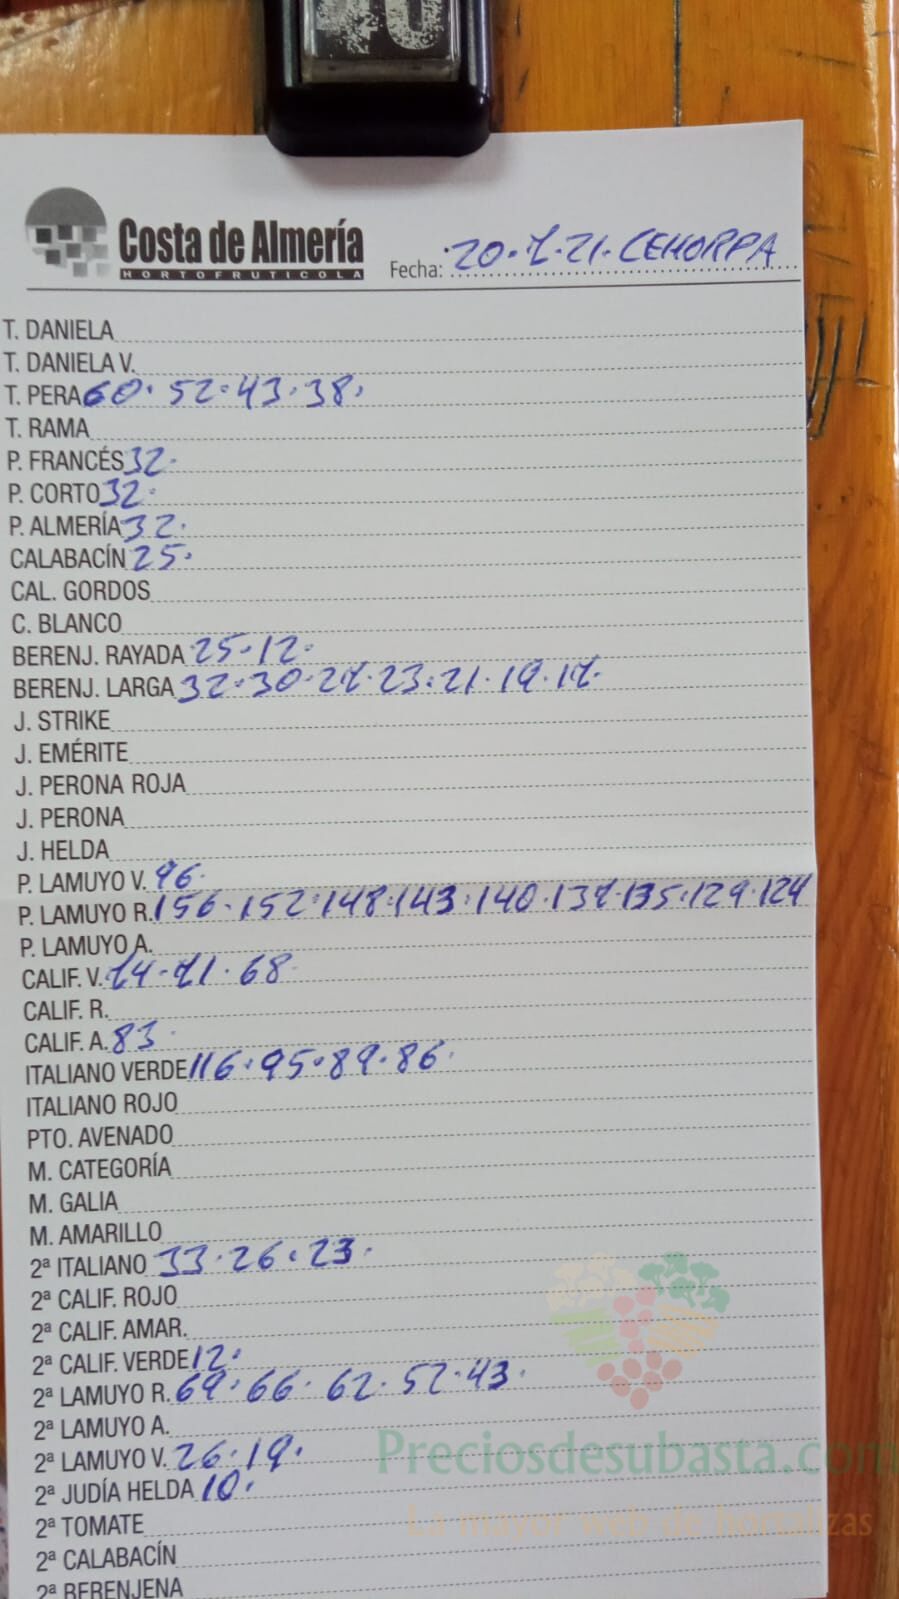 40
Costa de Almería
HORTOFRUTICOLA
Fecha: 20.7.21. CEHORPA
T. DANIELA
T. DANIELA V.
T. PERA 60. 52. 43. 38.
T. RAMA
P. FRANCÉS 32.
P. CORTO 32.
P. ALMERÍA 32.
CALABACÍN 25.
CAL. GORDOS
C. BLANCO
BERENJ. RAYADA 25. 12.
BERENJ. LARGA 32. 30. 27. 23. 21. 19. 17.
J. STRIKE
J. EMÉRITE
J. PERONA ROJA
J. PERONA
J. HELDA
P. LAMUYO V. 96.
P. LAMUYO R. 156. 152. 148. 143. 140. 137. 135. 129. 124
P. LAMUYO A.
CALIF. V. 74. 71. 68.
CALIF. R.
CALIF. A. 83.
ITALIANO VERDE 116. 95. 89. 86.
ITALIANO ROJO
PTO. AVENADO
M. CATEGORÍA
M. GALIA
M. AMARILLO
2ª ITALIANO 33. 26. 23.
2ª CALIF. ROJO
2ª CALIF. AMAR.
2ª CALIF. VERDE 12.
2ª LAMUYO R. 69. 66. 62. 52. 43.
2ª LAMUYO A.
2ª LAMUYO V. 26. 19.
2ª JUDÍA HELDA 10.
2ª TOMATE
2ª CALABACÍN
2ª BERENJENA
Preciosdesubasta.com
La mayor web de hortalizas